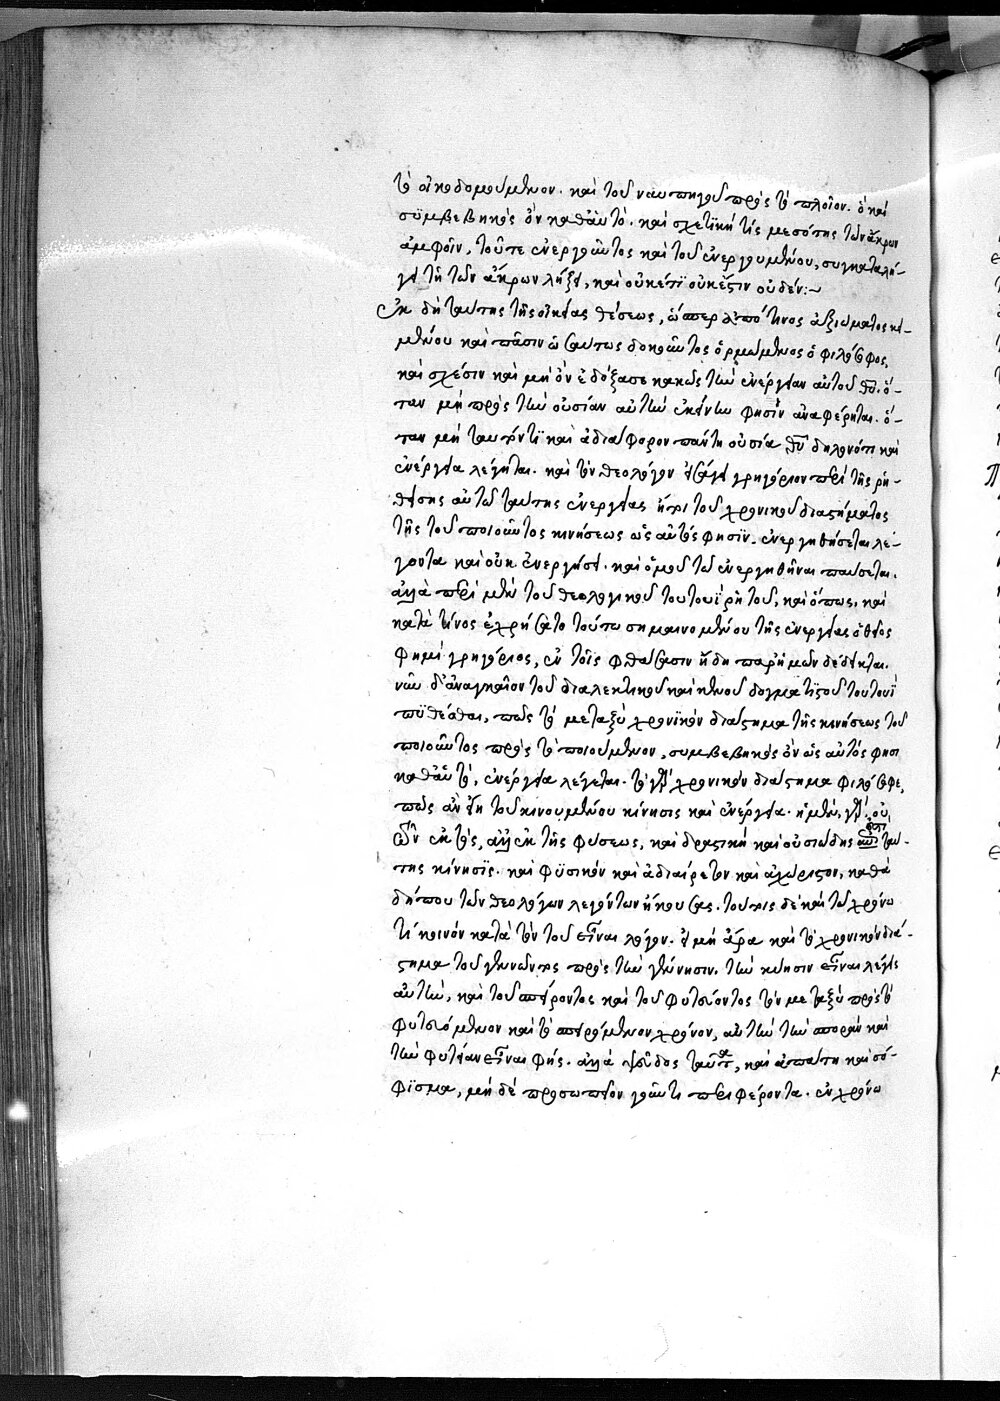 τὸ οἰκοδομούμενον. καὶ τοῦ ναυπηγοῦ πρὸς τὸ πλοῖον. ὃ καὶ
συμβεβηκὸς ὂν καθ' αὑτό. καὶ σχετική τις μεσότης τῶν ἄκρων
ἀμφοῖν, τοῦτε ἐνεργοῦντος καὶ τοῦ ἐνεργουμένου, συγκαταλή-
γει τῇ τῶν ἄκρων λήξει, καὶ οὐκέτι οὐκ ἔστιν οὐδέν:~
Ἐκ δὴ ταύτης τῆς οἰκείας θέσεως, ὥσπερ ἀπό τινος ἀξιώματος κει-
μένου καὶ πᾶσιν ὡσαύτως δοκοῦντος ὁρμώμενος ὁ φιλόσοφος,
καὶ σχέσιν καὶ μὴ ὂν ἐδόξασε κακῶς τὴν ἐνέργειαν αὐτοῦ θεοῦ. ὅ-
ταν μὴ πρὸς τὴν οὐσίαν αὐτὴν ἐκείνην φησὶν ἀναφέρηται. ὅ-
ταν μὴ ταυτόν τι καὶ ἀδιάφορον πάντη οὐσία θεοῦ δηλονότι καὶ
ἐνέργεια λέγηται. καὶ τὸν θεολόγον εἰσάγει γρηγόριον περὶ τῆς ῥη-
θείσης αὐτῷ ταύτης ἐνεργείας ἤτοι τοῦ χρονικοῦ διαστήματος
τῆς τοῦ ποιοῦντος κινήσεως ὡς αὐτός φησιν. ἐνεργηθήσεται λέ-
γοντα καὶ οὐκ ἐνεργήσει. καὶ ὁμοῦ τῷ ἐνεργηθῆναι παύσεται.
ἀλλὰ περὶ μὲν τοῦ θεολογικοῦ τουτουῒ ῥητοῦ, καὶ ὅπως, καὶ
κατὰ τίνος ἐχρήσατο τούτω σημαινομένου τῆς ἐνεργείας ὁ θεῖος
φημὶ γρηγόριος, ἐν τοῖς φθάσασιν ἤδη παρ' ἡμῶν δέδεικται.
νῦν δ' ἀναγκαῖον τοῦ διαλεκτικοῦ καὶ κενοῦ δογματιστοῦ τουτουῒ
πυθέσθαι, πῶς τὸ μεταξὺ χρονικὸν διάστημα τῆς κινήσεως τοῦ
ποιοῦντος πρὸς τὸ ποιούμενον, συμβεβηκὸς ὂν ὡς αὐτός φησι
καθ' αὑτό, ἐνέργεια λέγεται. τὸ γὰρ χρονικὸν διάστημα φιλόσοφε,
πῶς ἂν εἴη τοῦ κινουμένου κίνησις καὶ ἐνέργεια. ἡ μὲν γὰρ, οὐ
τῶν ἐκτός, ἀλλ' ἐκ τῆς φύσεως, καὶ δραστικὴ καὶ οὐσιώδης ἐστὶ ταύ-
της κίνησις. καὶ φυσικὸν καὶ ἀδιαίρετον καὶ ἀχώριστον, καθὰ
δήπου τῶν θεολόγων λεγόντων ἤκουσας. τούτοις δὲ καὶ τῷ χρόνω
τί κοινὸν κατὰ τὸν τοῦ εἶναι λόγον. εἰ μὴ ἄρα καὶ τὸ χρονικὸν διά-
στημα τοῦ γεννῶντος πρὸς τὴν γέννησιν. τὴν κίνησιν εἶναι λέγεις
αὐτήν, καὶ τοῦ σπείροντος καὶ τοῦ φυτεύοντος τὸν μεταξὺ πρὸς τὸ
φυτευόμενον καὶ τὸ σπειρόμενον χρόνον, αὐτὴν τὴν σπορὰν καὶ
τὴν φυτείαν εἶναι φής. ἀλλὰ ψεῦδος ταῦτα, καὶ ἀπάτη καὶ σό-
φισμα, μηδὲ προσωπεῖον γοῦν τι περιφέροντα. ἐν χρόνω